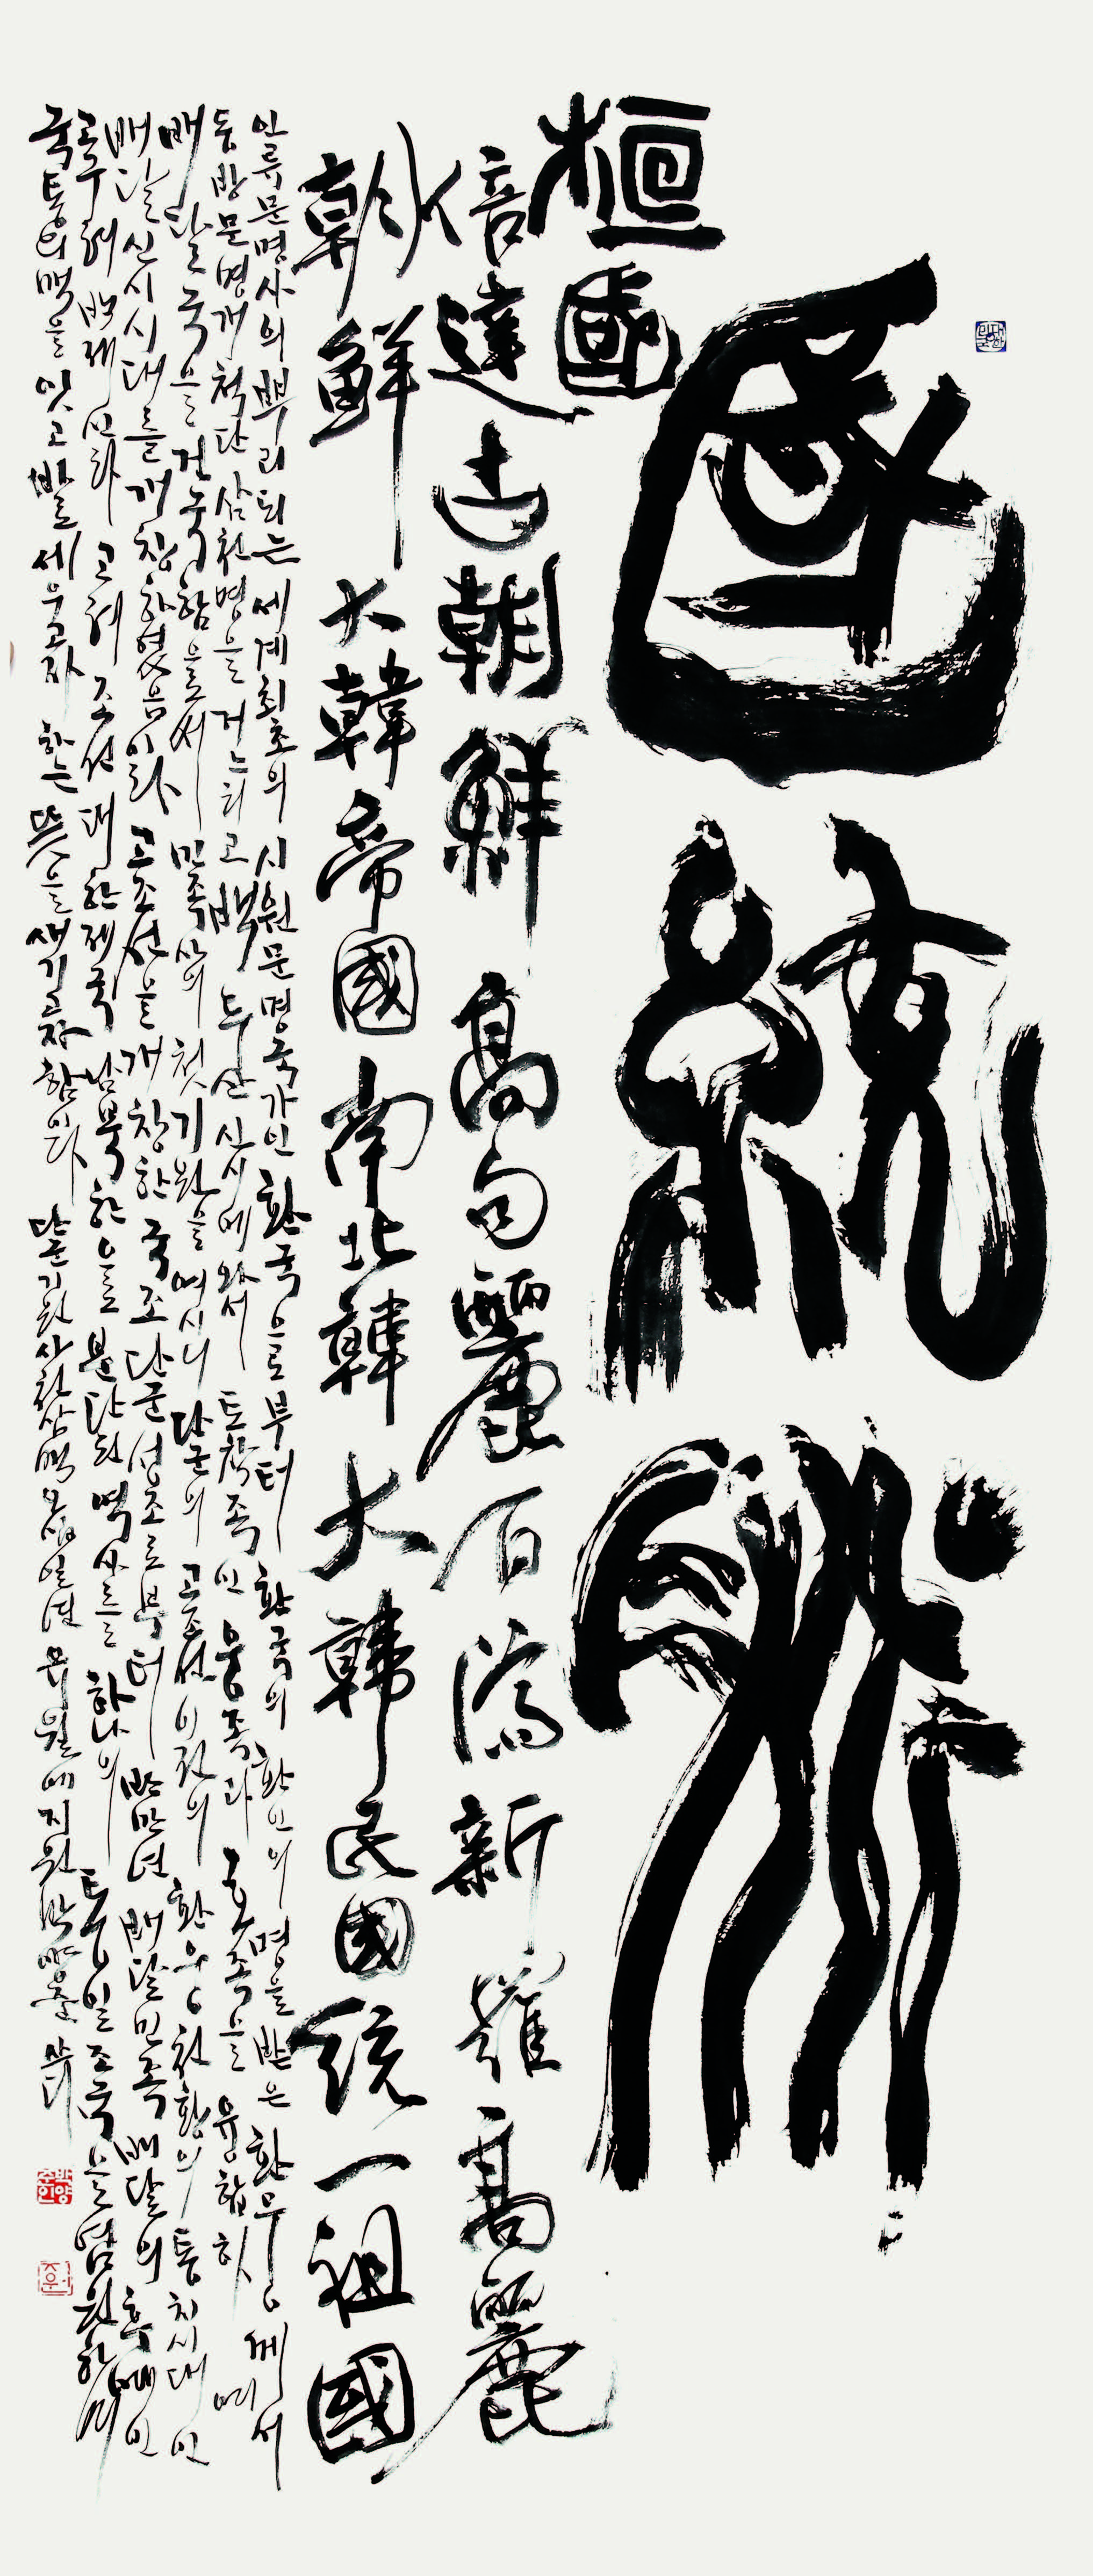 國統脈
桓國
倍達古朝鮮 高句麗百濟新羅高麗
朝鮮 大韓帝國南北韓大韓民國統一祖國
인류문명사의 뿌리되는 세계최초의 시원문명국가인 환국으로부터 환국의 환인의 명을 받은 환웅께서
동방문명개척단 삼천명을 거느리고 백두산 신시에 와서 토착족인 웅족과 호족을 융합하며
배달국을 건국함으로써 민족사의 첫 기원을 여시니 단군의 고조선 이전의 환웅천황의 통치시대인
배달신시시대를 개창하였음이라 고조선을 개창한 국조 단군성조로부터 반만년 배달민족 배달의 후예인
고구려 백제 신라 고려 조선 대한제국 남북한으로 분단된 역사를 하나의 통일조국을 염원하며
국통의 맥을 잇고 바로 세우고자 하는 뜻을 새기고자함이다 단군기원사천삼백 유월에 지원 박양준